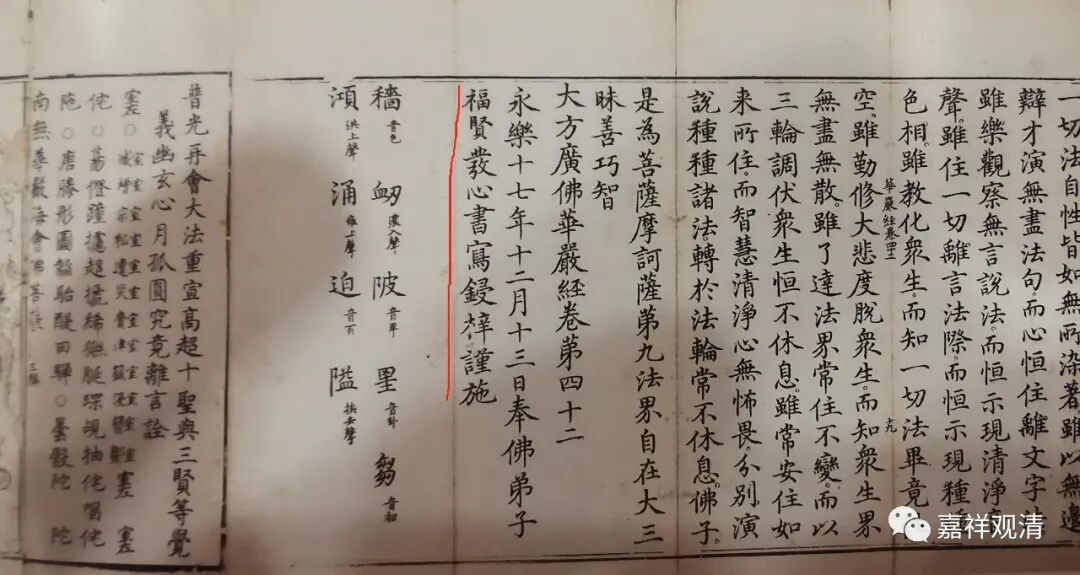 一切法自性皆如無所染著雖以無邊
辯才演無盡法句而心恒住離文字法
雖樂觀察無言說法而恒示現清淨
聲雖住一切離言法際而恒示現種種
色相雖教化衆生而知一切法畢竟
華嚴經卷四十二
空雖勤修大悲度脫衆生而知衆生界
無盡無散雖了達法界常住不變而以
三輪調伏衆生恒不休息雖常安住如
来所住而智慧清淨心無怖畏分别演
說種種諸法轉於法輪常不休息佛子
是為菩薩摩訶薩第九法界自在大三
昧善巧智
大方廣佛華嚴經卷第四十二
永樂十七年十二月十三日奉佛弟子
福賢發心書寫鋟梓謹施
穡 音色 陂 音卑 芻 音初
澒 洪上聲 涌 雍上聲 迫 音百 隘
普光再會大法重宣高超十聖與三賢等覺
義幽玄心月孤圓究竟離言詮
南無華嚴海會佛菩薩 三稱
嘉祥观清